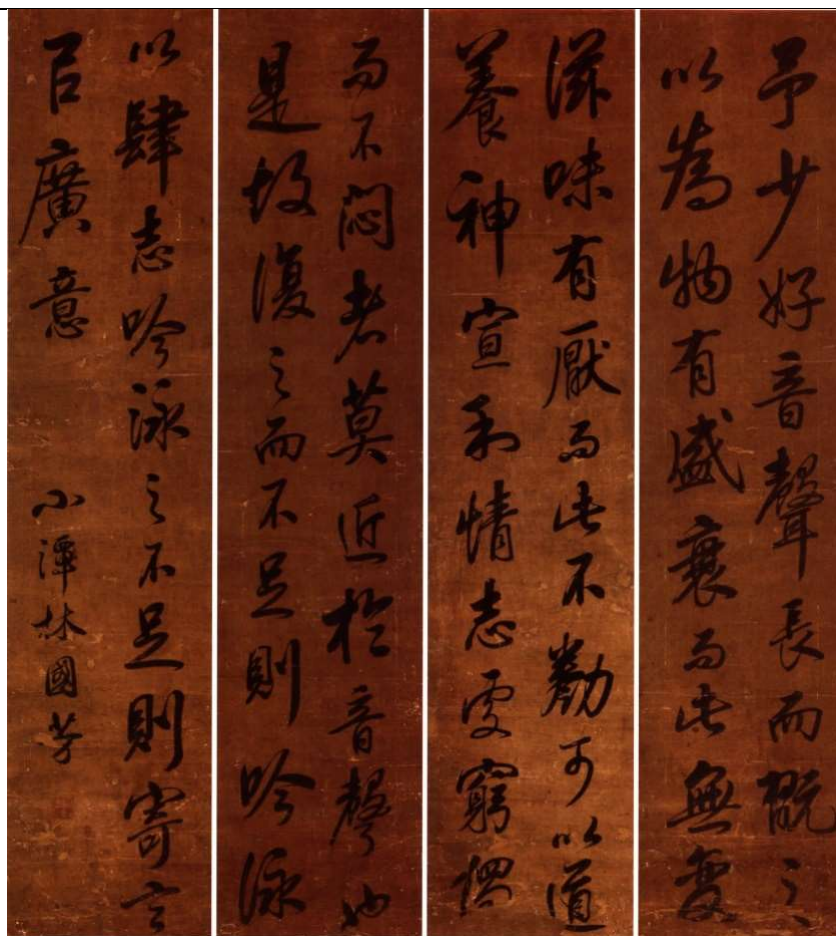 予少好音聲長而翫之
以為物有盛衰而此無變
滋味有厭而此不勌可以道
養神宣和情志處窮獨
而不悶者莫近於音聲也
是故復之而不足則吟詠
以肆志吟詠之不足則寄言
以廣意
小潭林國芳